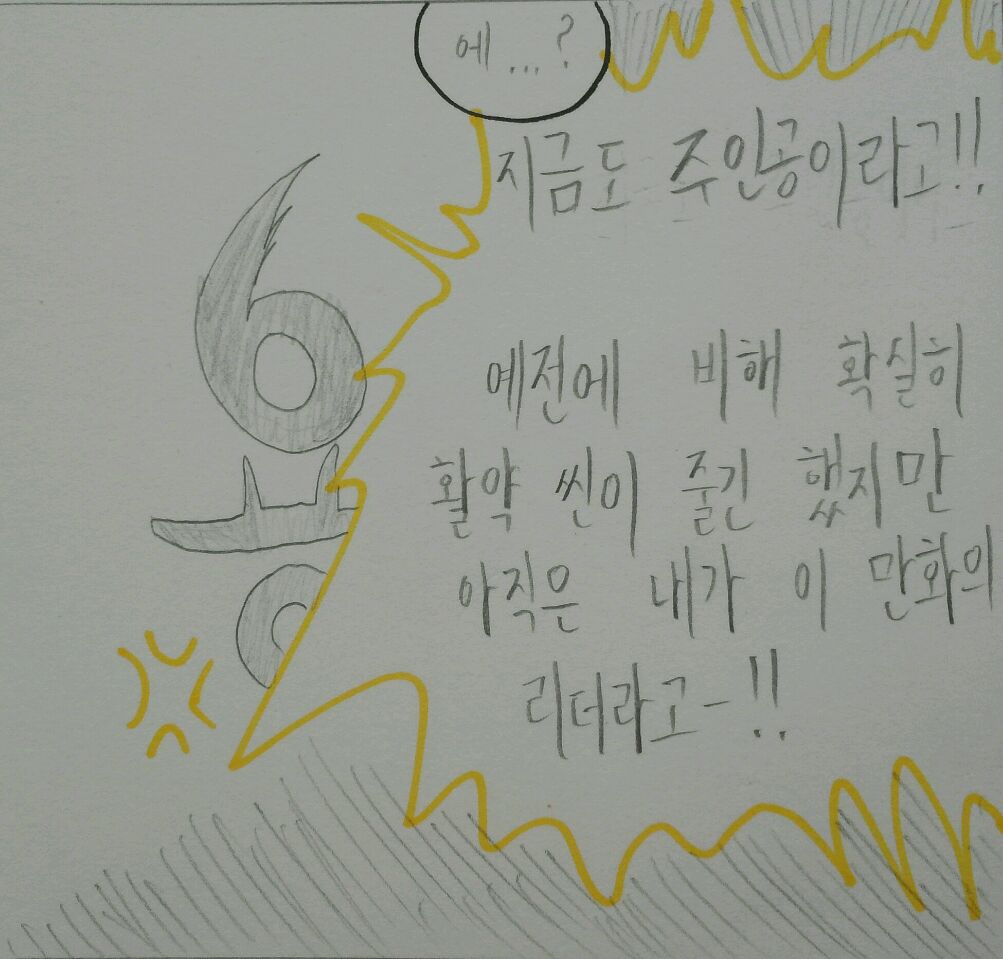 에 ... ?
지금도 주인공이라고!!
용
예전에 비해 확실히
활약 씬이 줄긴 했지만
아직은 내가 이 만화의
리더라고-!!